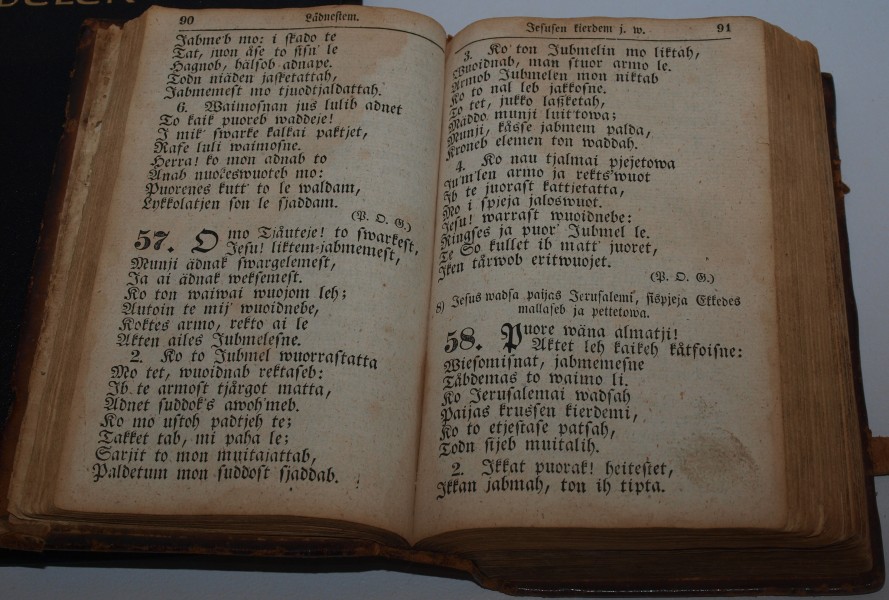 DELER
90 Lådnestem.
Jabme'b mo: i skado te
Tat, mon åse to sisn' le
Hagnob, hålsob adnape.
Todn niåden jasketattah,
Jabmemest mo tjuodtjaldattah.
6. Waimosnan jus lulib adnet
To kaik puoreb waddeje!
I mik' swarke kalkai paktjet,
Rafe luli waimosne.
Herra! ko mon adnab to
Anab nuoceswuoteb mo:
Puorenes kutt' to le waldam,
Lykkolatjen son le sjaddam.
(P. O. G.)
57. O mo Tjåuteje! to swarkest,
Jesu! liktem-jabmemest,
Munji ådnak swargelemest,
Ja ai ådnak weksemest.
Ko ton waiwai wuojom leh;
Autoin te mij' wuoidnebe,
Koktes armo, rekto ai le
Akten ailes Jubmelesne.
2. Ko to Jubmel wuorrastatta
Mo tet, wuoidnab rektaseb:
Ib te armost tjårgot matta,
Adnet suddok's awoh'meb.
Ko mo ustoh padtjeh te;
Takket tab, mi paha le;
Sarjit to mon muitajattab,
Paldetum mon suddost sjaddab.
Jesusen kierdem j. w. 91
3. Ko ton Jubmelin mo liktah,
Wuoidnab, man stuor armo le.
Armob Jubmelen mon niktab
Ko to nal leb jakkosne.
To tet, jukko lasketah,
Maddo munji luittowa;
Munji, kåsse jabmem palda,
Kroneb elemen ton waddah.
4. Ko nau tjalmai pjejetowa
Ju'm'len armo ja rekts'wuot
Ib te juorast kattjetatta,
Mo i spjeja jaloswuot.
Jesu! warrast wuoidnebe:
Ringses ja puor' Jubmel le.
Te So kullet ib matt' juoret,
Iken tårwob eritwuojet.
(P. O. G.)
8) Jesus wadsa paijas Jerusalemi, sispjeja Ekkedes
mallaseb ja pettetowa.
58. Puore wåna almatji!
Aktet leh kaikeh kåtfoisne:
Wiesomisnat, jabmemesne
Tåbdemas to waimo li.
Ko Jerusalemai wadsah
Paijas krussen kierdemi,
Ko to etjestase patsah,
Todn sijeb muitalih.
2. Ikkat puorak! heitesiet,
Ikkan jabmah, ton ih tipta.